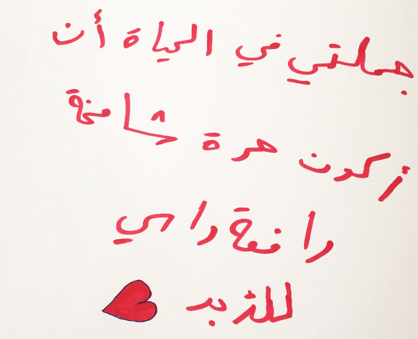 جملتي في الحياة أن
أكون حرة شامخة
رافعة راسي
للأبد